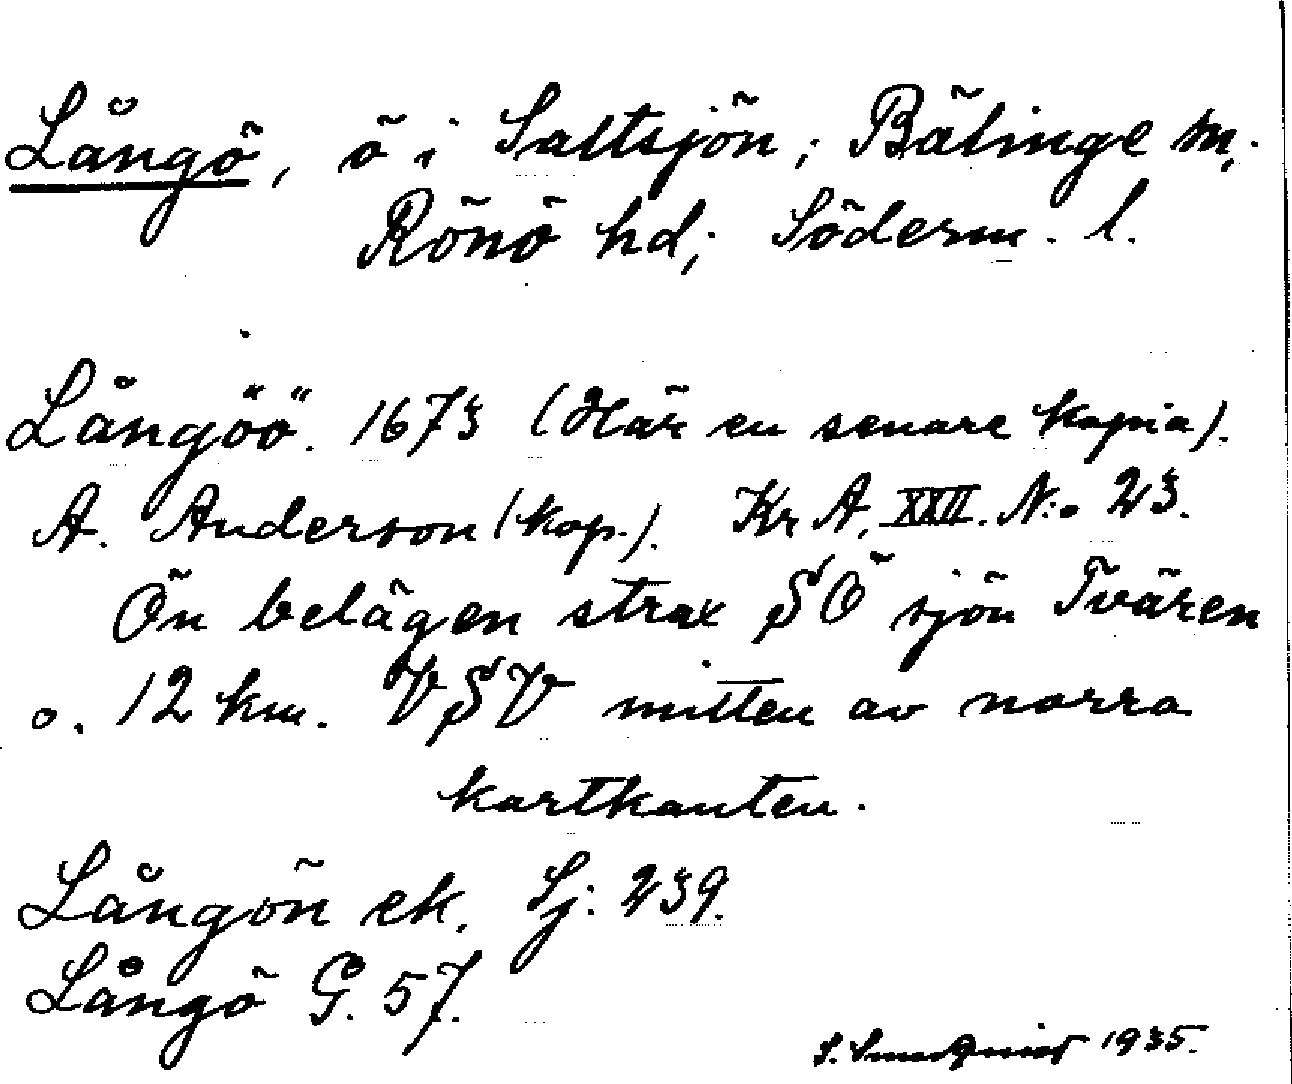 Långö, ö i Saltsjön; Bälinge sn,
Rönö hd; Söderm. l.
Långöö. 1673 (Här en senare kopia).
A. Anderson (kop.). Kr A, XXII. N:o 23.
Ön belägen strax SÖ sjön Tvären
o. 12 km. VSV mitten av norra
kartkanten.
Långön ek. Sj: 239.
Långö G. 57.
S. 1935.